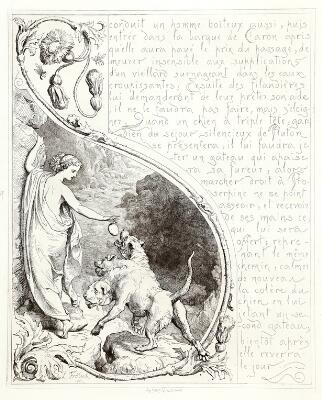 conduit un homme boiteux aussi, puis
entrer dans la barque de Caron après
qu'elle aura payé le prix du passage, de-
meurer insensible aux supplications
d'un vieillard surnageant dans les eaux
croupissantes; Ensuite des filandières
lui demanderont de leur prêter son aide
il ne le faudra pas faire, mais s'éloi-
gner. Quand un chien à triple tête, gar-
dien du séjour silencieux de Pluton
se présentera, il lui faudra je-
ter un gâteau qui apaise-
ra sa fureur, alors
marcher droit à Pro-
serpine ne se point
asseoir, et recevoir
de ses mains ce
qui lui sera
offert, repre-
nant le même
chemin, calmer
de nouveau
la colère du
chien en lui
jetant un se-
cond gâteau,
bientôt après
elle reverra
le jour